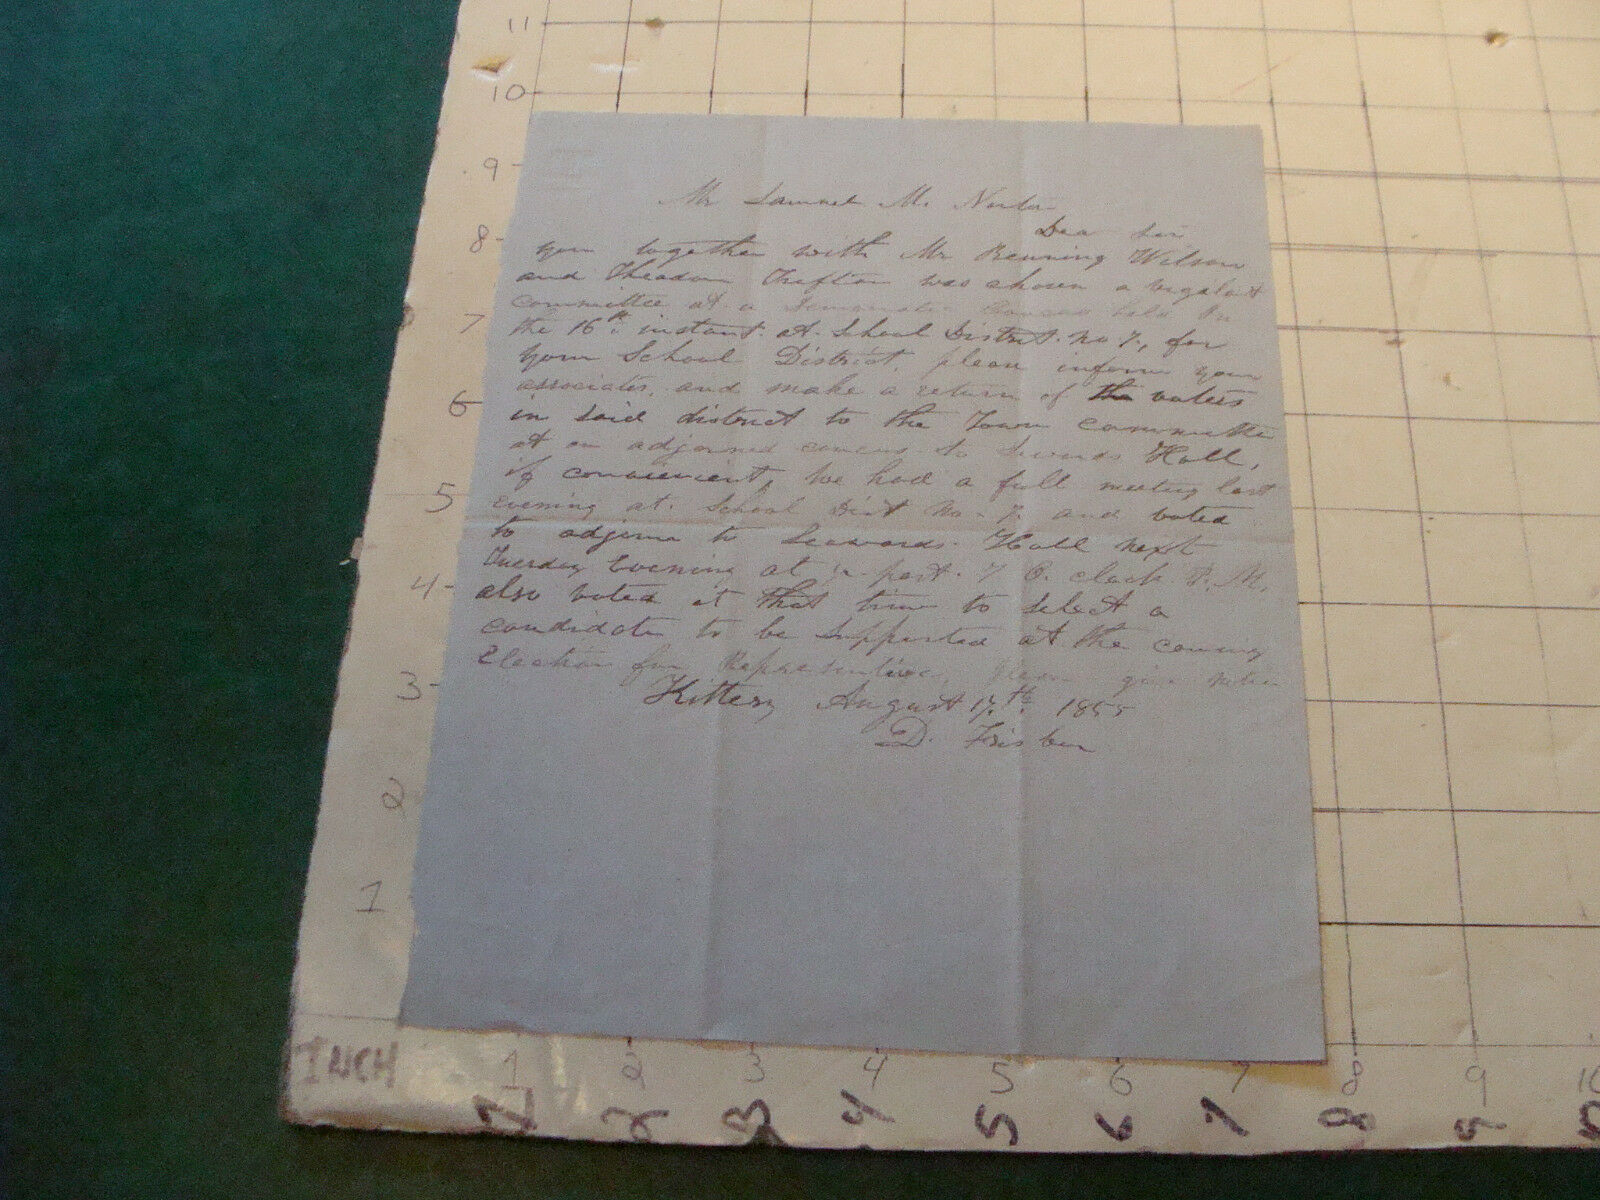 11
10
9
8
7
6
5
4
3
2
1
Mr Samuel M. Norton
Dear Sir
you together with Mr Benning Wilson
and Theador Trafton was chosen a vigelant
committee at a held on
the 16th instant at School District No 7, for
your School District, please inform your
associates, and make a return of the voters
in said district to the Town committee
at an adjorned caucus to Sewards Hall,
if convienient, we had a full meeting last
evening at School Dist No-7 and voted
to adjorn to Seawards Hall next
Tuesday Evening at ½ past 7 O. clock P. M.
also voted at that time to select a
candidate to be supported at the coming
Election for Representive, please give notice
Kittery August 17th 1855
D.
INCH 1 2 3 4 5 6 7 8 9 10
1 2 3 4 5 6 7 8 9